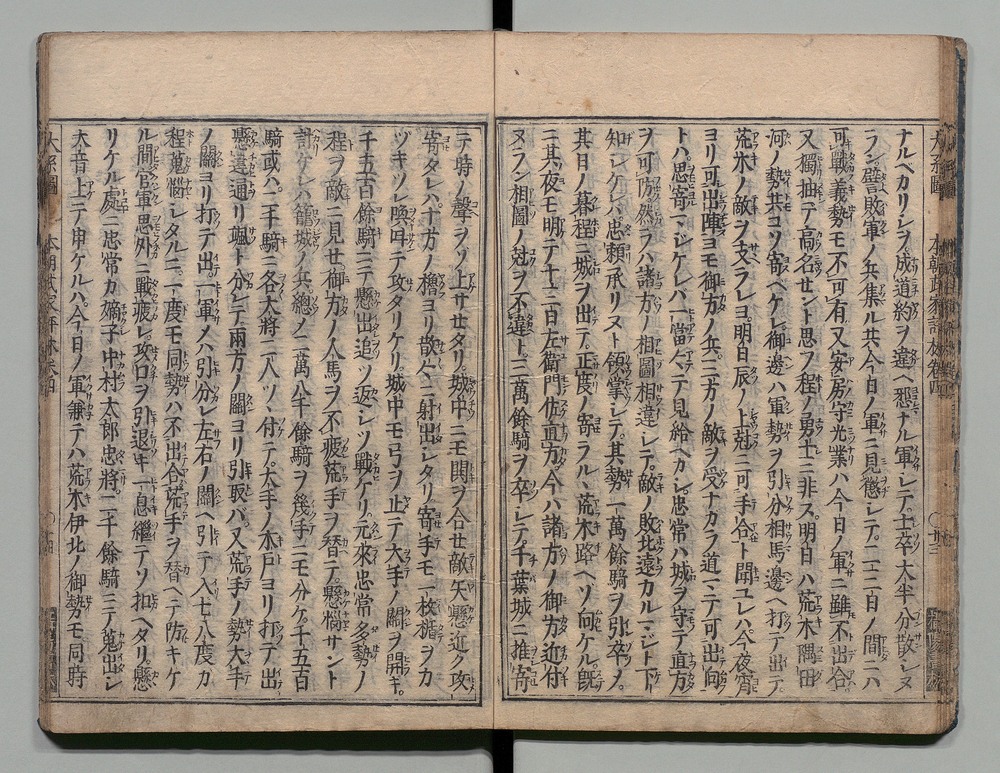 ナルベカリシヲ成道約ヲ違ヘ恐ナル軍シテ士卒大半分散シヌ
ラン譬敗軍ノ兵集ル共今日ノ軍ニ見懲シテ一二三日ノ間ニハ
可戰義勢モ不可有又安房守光業ハ今日ノ軍ニ雖不出合
又獨抽テ高名サント思フ程ノ勇士ニ非ス明日ハ荒木隅田
河ノ勢共コソ寄ベケレ御邊ハ軍勢ヲ引分相馬邊ヘ打テ出テ
荒木ノ敵ヲ支ラレヨ明日辰ノ上剋ニ可手合ト聞ユレハ今夜宵
ヨリ可出陣ヨモ御方ノ兵三方ノ敵ヲ受ナカラ道マテ可出向
トハ思寄マジケレハ一當々テ見給ヘカシ忠常ハ城ヲ守テ直方
ヲ可防然ラハ諸方ノ相圖相違シテ敵ノ敗北遠カルマジト下
知シケレハ忠頼承リヌト領掌シテ其勢一萬餘騎ヲ引卒メ
其日ノ暮程ニ城ヲ出テ正度ノ寄ラルヽ荒木路ヘソ向ケル既
ニ其夜モ明テ十三日左衛門佐直方今ハ諸方ノ御方近付
ヌラン相圖ノ剋ヲ不違ト二萬餘騎ヲ卒シテ千葉城ニ推寄
大系圖 本朝武家評林卷四 〇卅三
テ時ノ聲ヲソ上サセタリ城中ニモ鬨ヲ合セ敵矢懸近ク攻
寄タレハ十方ノ櫓ヨリ散々ニ射出シタリ寄手モ一枚楯ヲカ
ヅキツレ喚叫テ攻タリケリ城中モ弓ヲ止テ大手ノ關ヲ開キ
千五百餘騎ニテ懸出追ツ返シツ戰ケリ元來忠常多勢ノ
程ヲ敵ニ見セ御方ノ人馬ヲ不疲荒手ヲ替テ懸惱サント
計ケレハ籠城ノ兵總ノ二萬八千餘騎ヲ幾手ニモ分ケ千五百
騎或ハ二千騎ニ各大將二人ツヽ付テ大手ノ木戸ヨリ打テ出
懸違通リ颯ト分レテ兩方ノ關ヨリ引取バ又荒手ノ勢大手
ノ關ヨリ打テ出一軍メハ引分レ左右ノ關ヘ引テ入七八度カ
程蒐惱シタルニ一度モ同勢ハ不出合荒手ヲ替ヘテ防キケ
ル間官軍思外ニ戰疲レ攻口ヲ引退キ一息繼テソ扣ヘタリ懸
リケル處ニ忠常カ嫡子中村太郎忠將二千餘騎ニテ蒐出シ
大音上テ申ケルハ今日ノ軍兼テハ荒木伊北ノ御勢モ同時
大系圖 本朝武家評林卷四